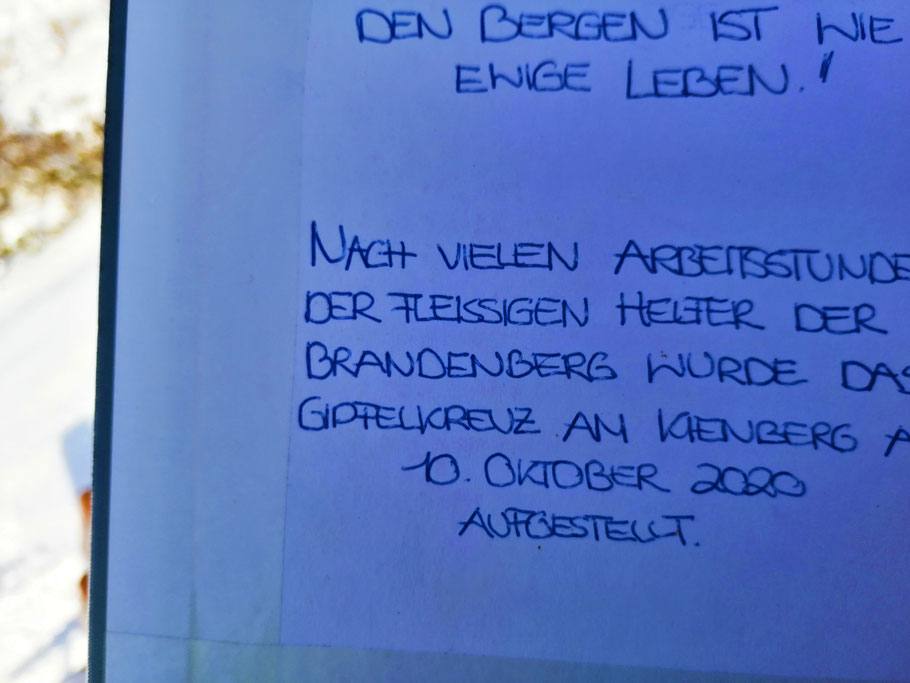 DEN BERGEN IST WIE
EWIGE LEBEN."
NACH VIELEN ARBEITSSTUNDE
DER FLEISSIGEN HELFER DER
BRANDENBERG WURDE DAS
GIPFELKREUZ AM KIENBERG A
10. OKTOBER 2020
AUFGESTELLT.